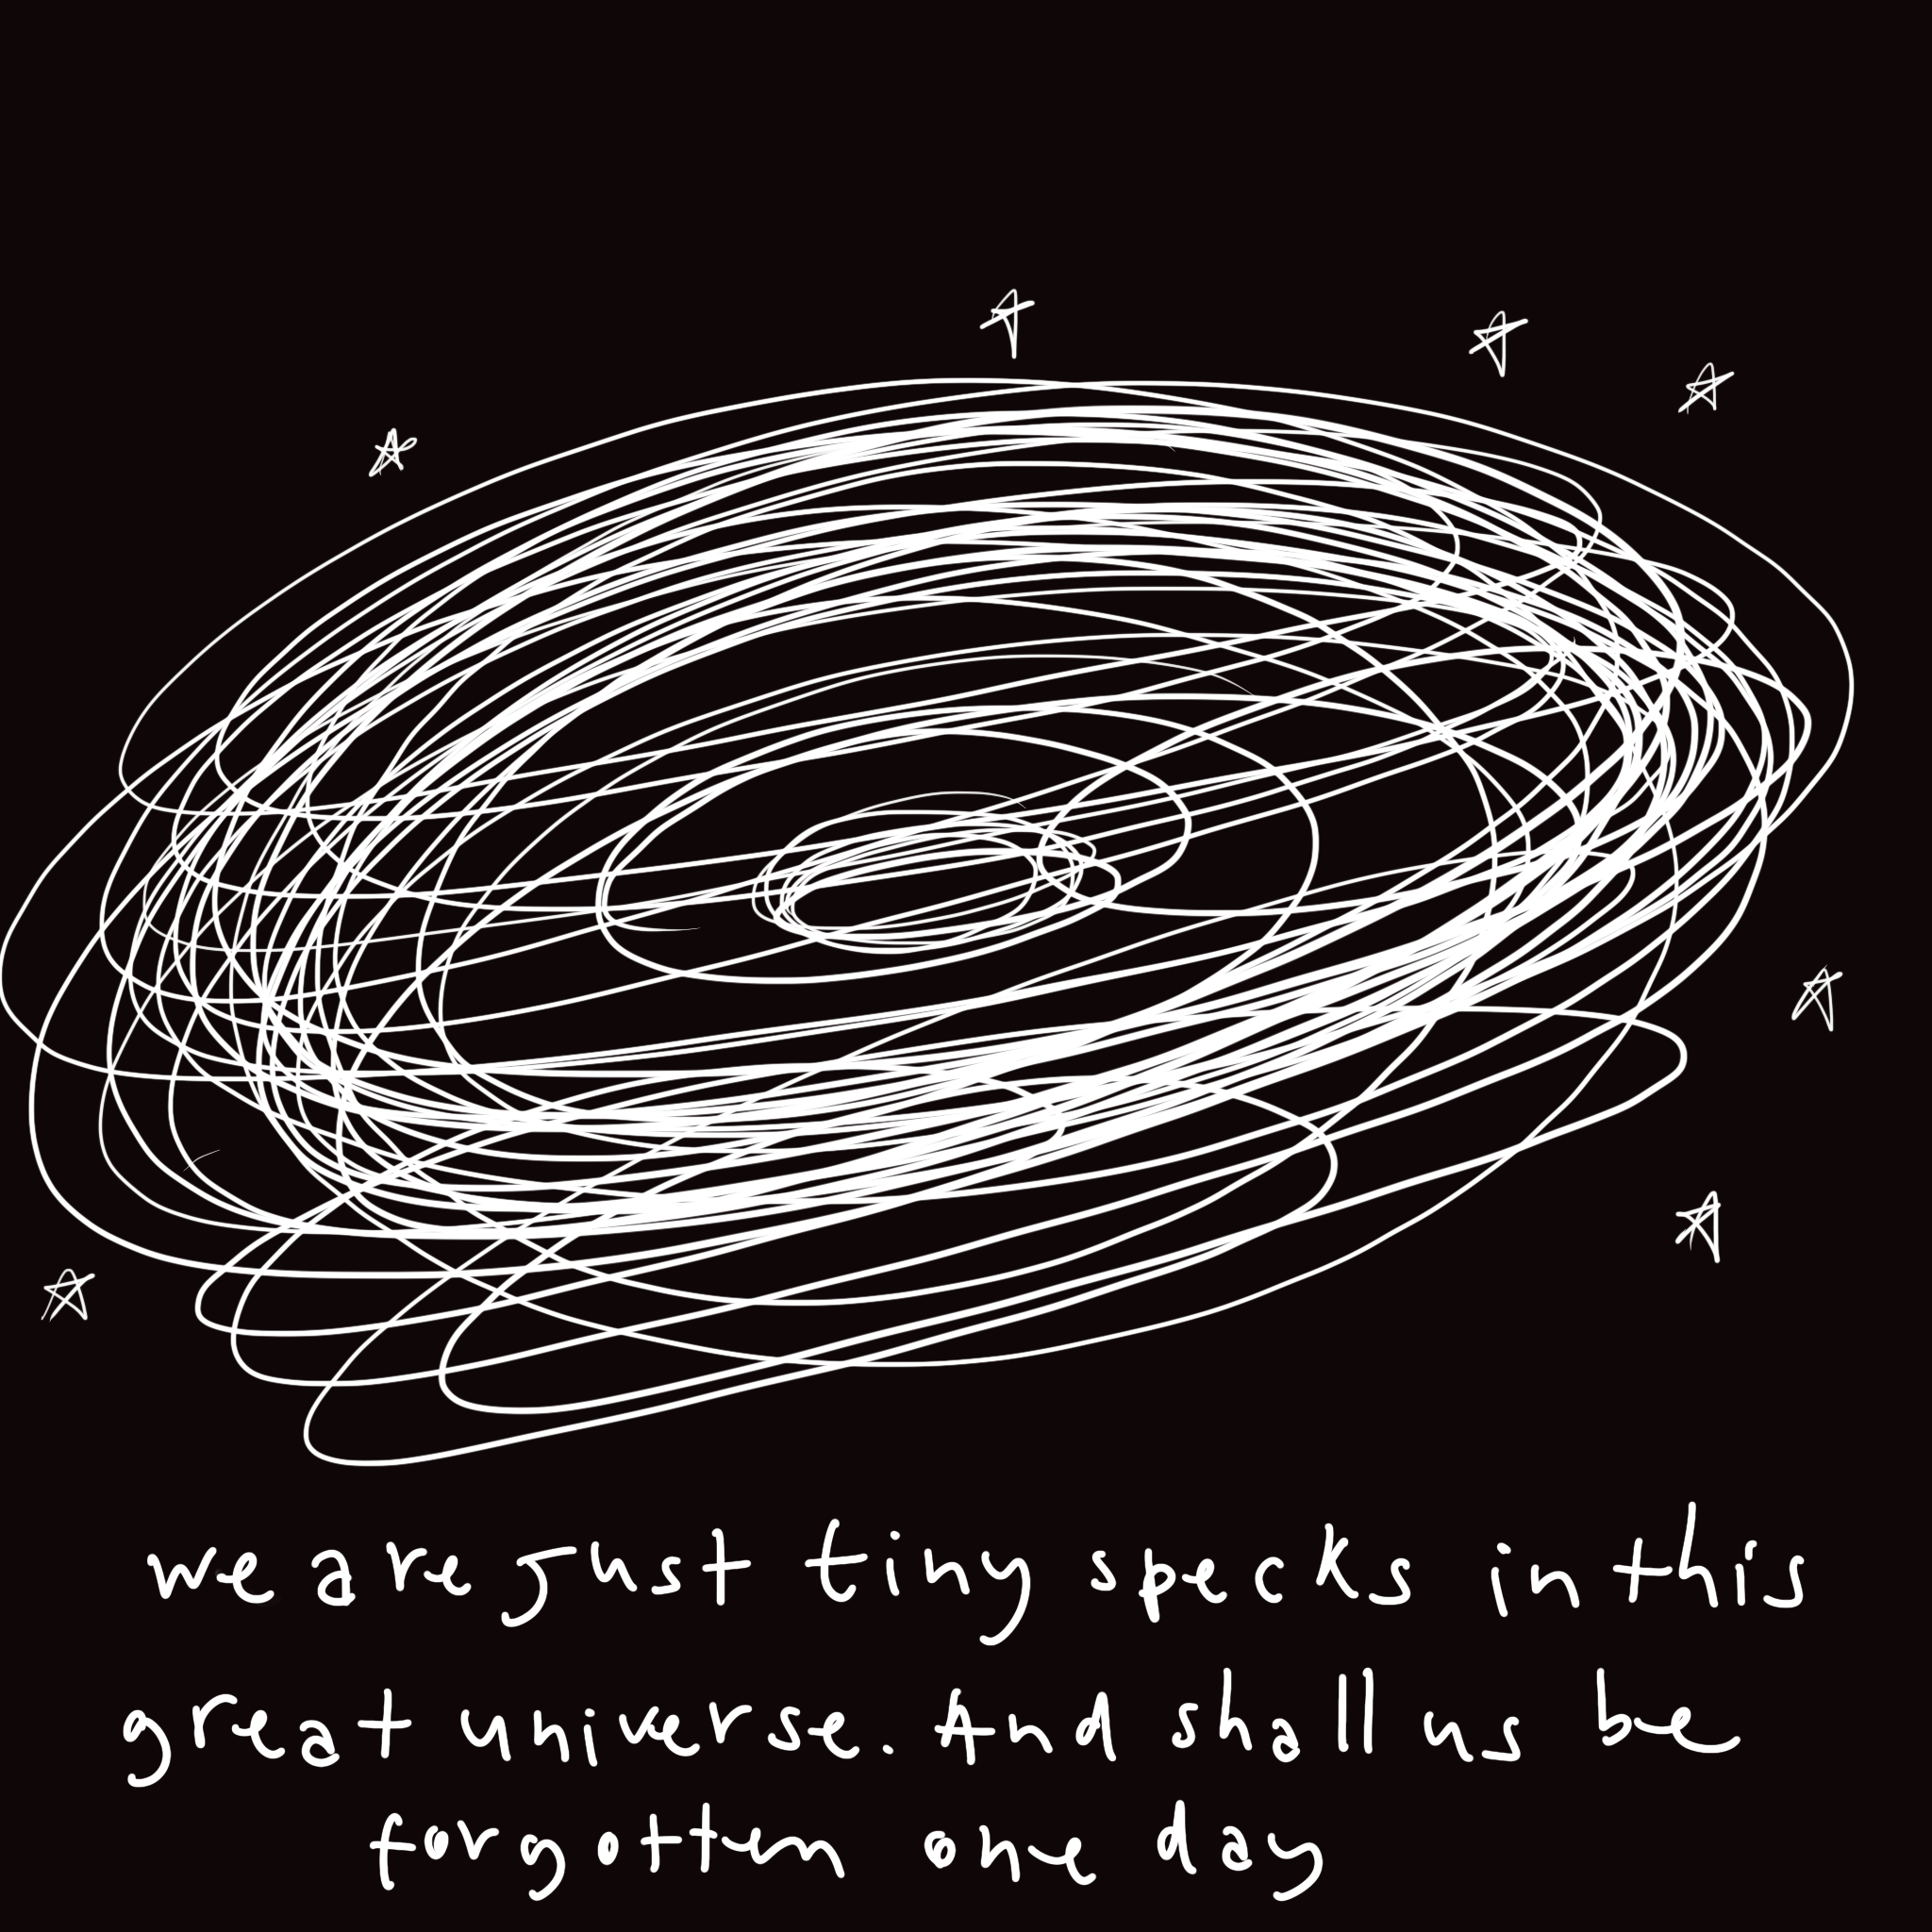 we are just tiny specks in this
great universe. And shall us be
forgotten one day